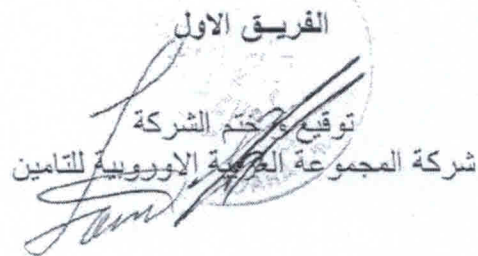 الفريق الاول
توقيع و ختم الشركة
شركة المجموعة العربية الاوروبية للتامين